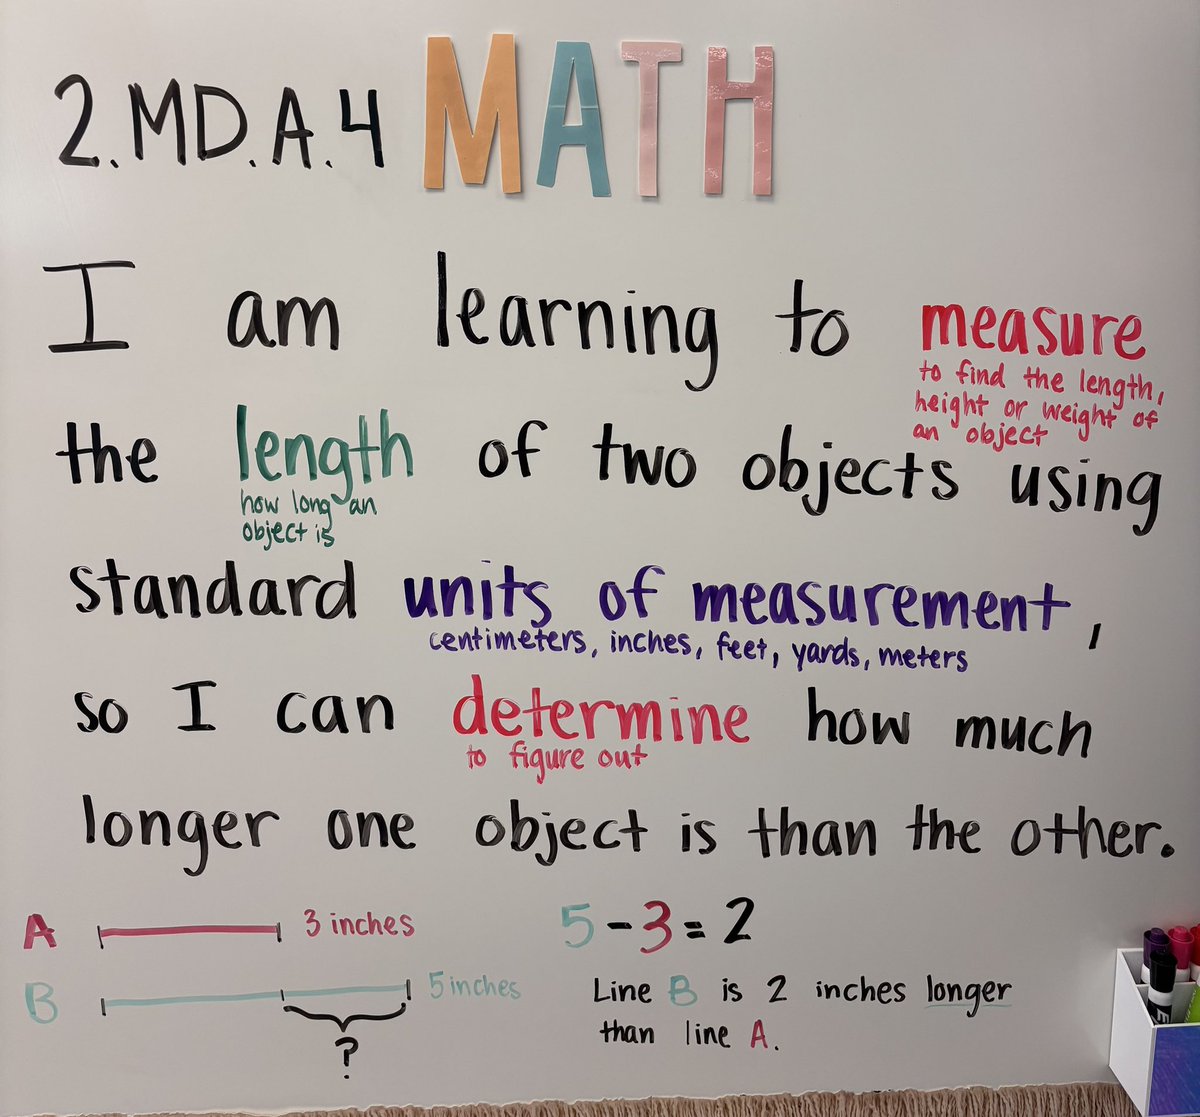 2.MD.A.4 MATH
I am learning to measure
to find the length,
height or weight of
an object
the length of two objects using
how long an
object is
standard units of measurement,
centimeters, inches, feet, yards, meters
so I can determine how much
to figure out
longer one object is than the other.
A 3 inches
B 5 inches
?
5-3=2
Line B is 2 inches longer
than line A.